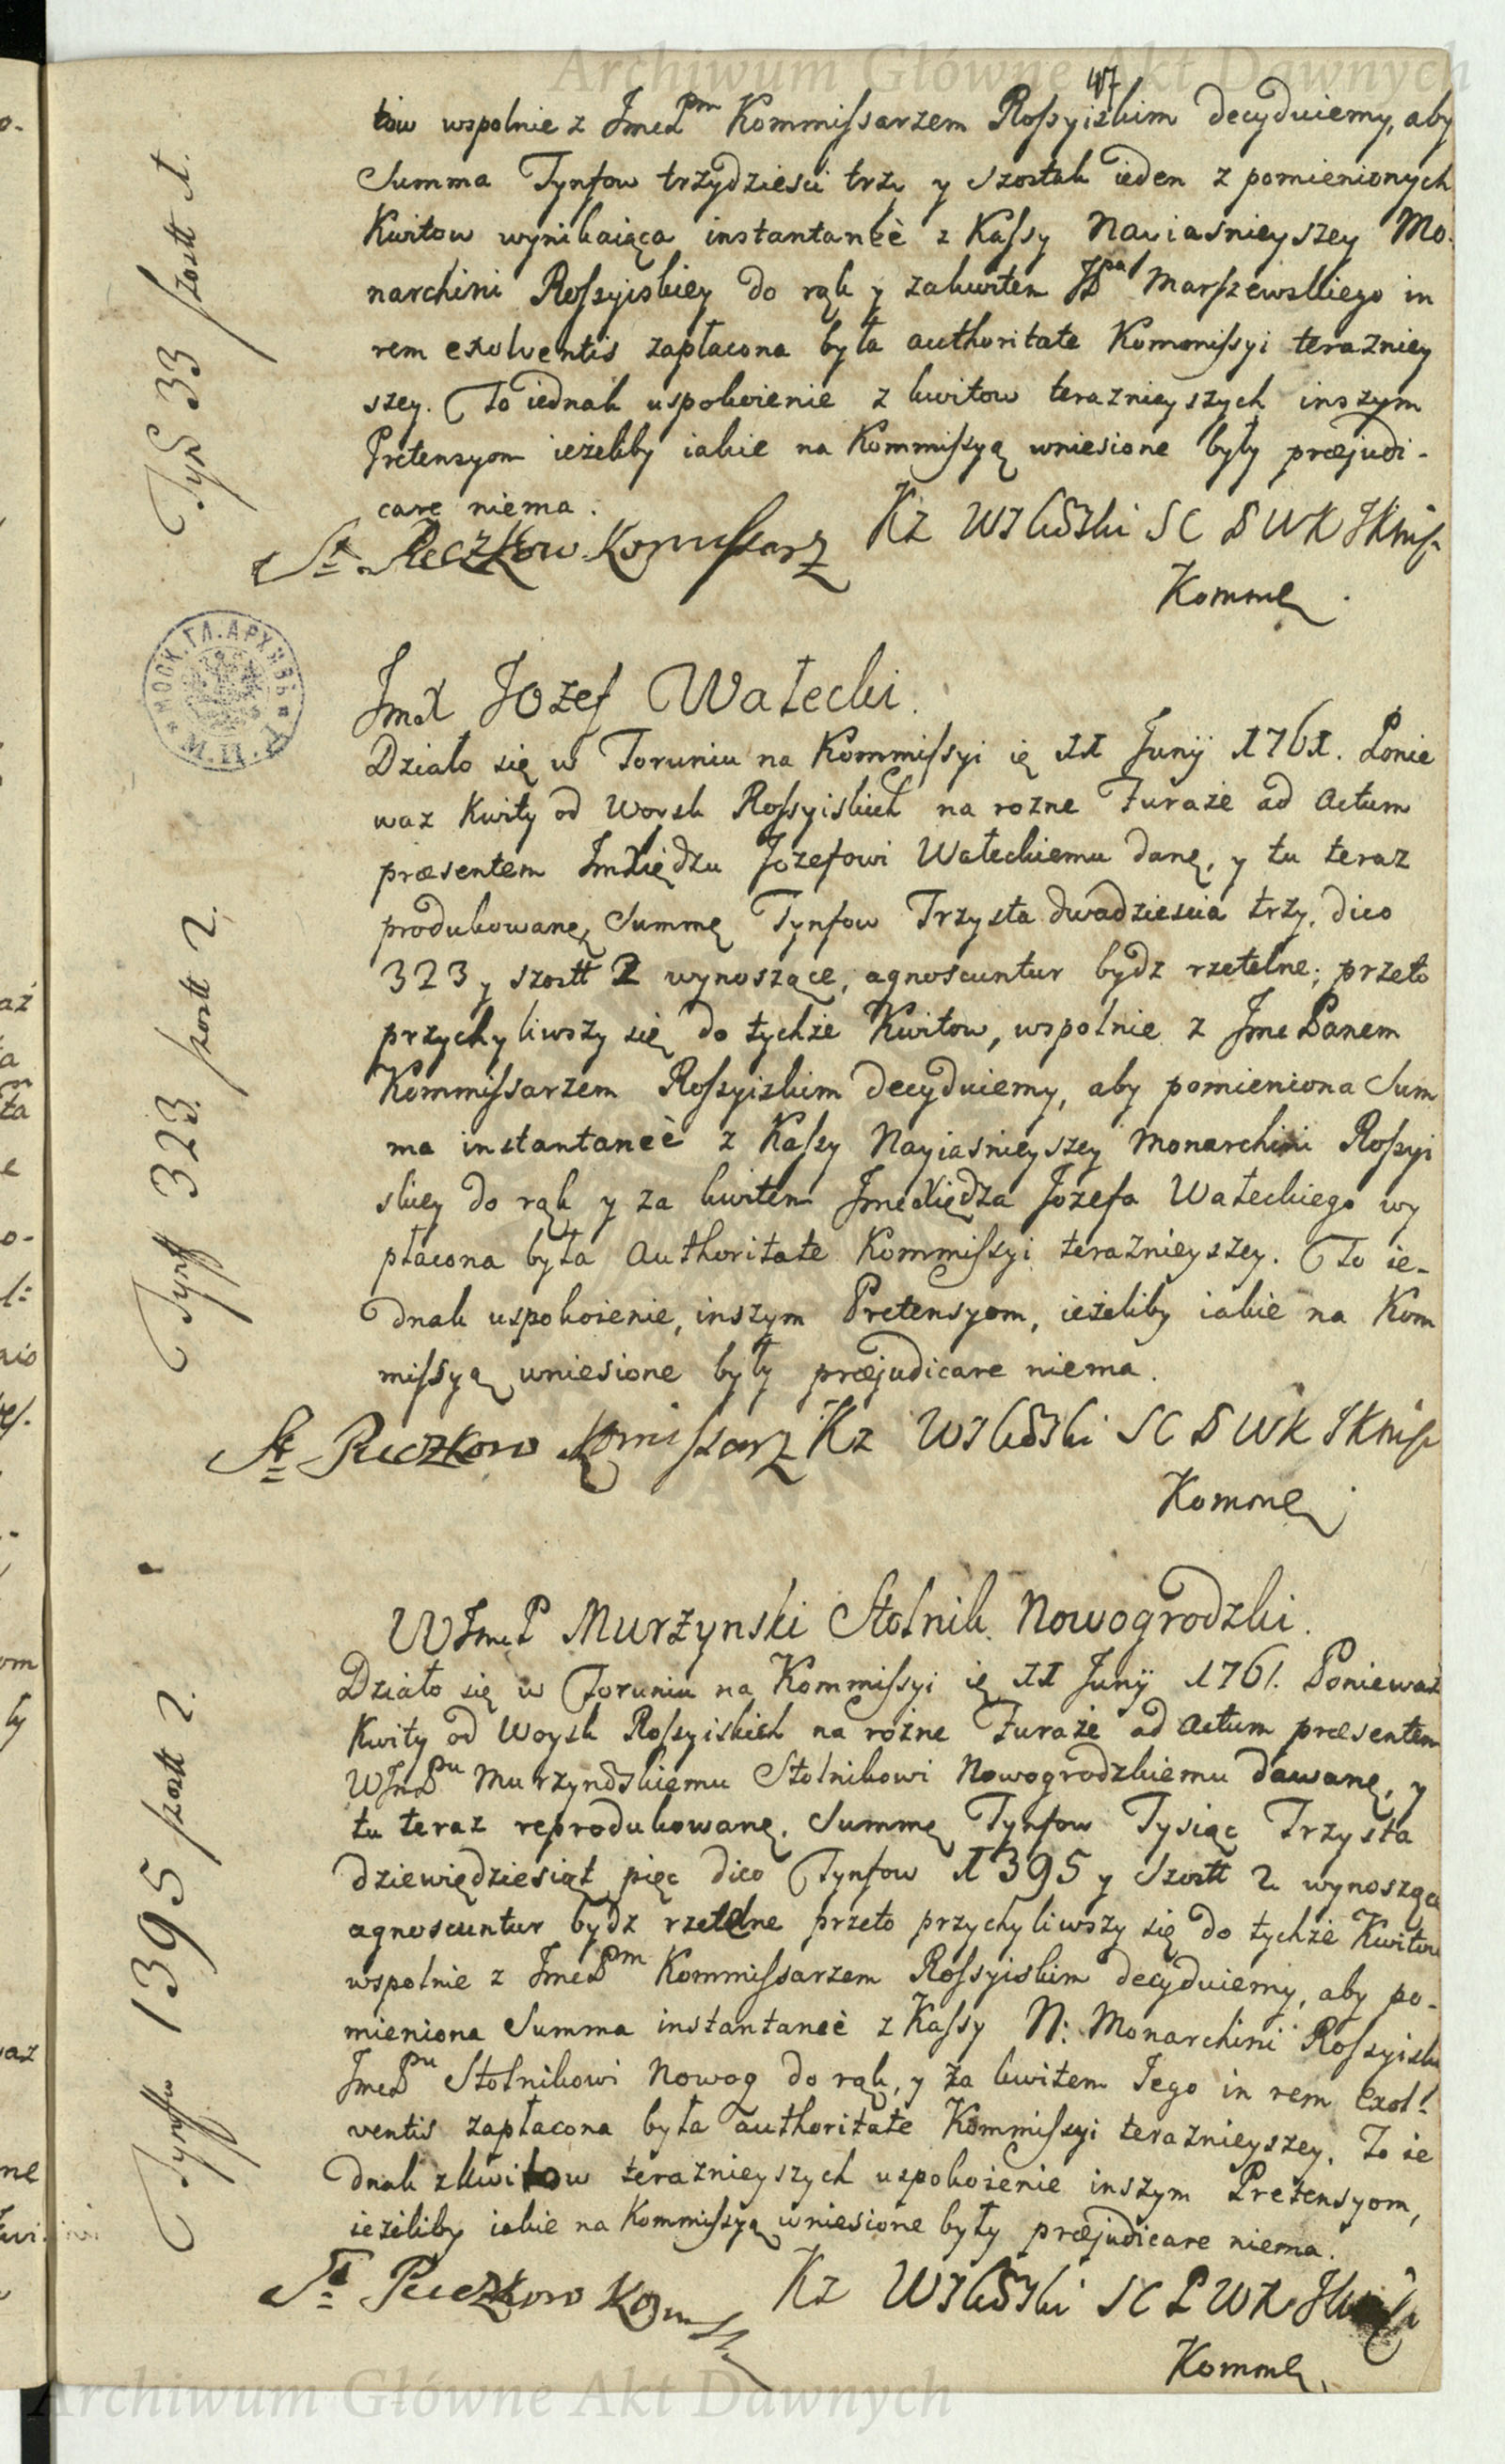 Archiwum Główne Akt Dawnych
47
tow wspolnie z JmcPm Kommissarzem Rossyiskim decyduiemy, aby
Summa Tynfow trzydziesci trzy y szostak ieden z pomienionych
Kwitow wynikaiąca instantaneè z Kassy Nayiasnieyszey Mo-
narchini Rossyiskiey do rąk y zakwitem JPa Marszewskiego in
rem exolventis zapłacona była authoritate Kommissyi terazniey
szey. To iednak uspokoienie z kwitow terazniejszych inszym
Pretensyom ieżeliby iakie na Kommissyą wniesione były præjudi-
care niema.
Tynf 33 szostt 1.
St. Reczkow Komissarz
Kz SC WK
Kommę
МОСК. ГЛ. АРХИВЪ М.И.Д.
JmX Jozef Wałecki.
Działo się w Toruniu na Kommissyi ię 11 Junÿ 1761. Ponie
waz Kwity od Woysk Rossyiskich na rozne Furaże ad Actum
præsentem ImXiędzu Jozefowi Wałeckiemu danę, y tu teraz
produkowanę, Summę Tynfow Trzysta dwadziescia trzy, dico
323 y szostt 2 wynoszące, agnoscuntur bydz rzetelne; przeto
przychyliwszy się do tychże Kwitow, wspolnie z Jmc Panem
Kommissarzem Rossyiskim decyduiemy, aby pomieniona Sum
ma instantaneè z Kassy Nayiasnieyszey Monarchini Rossyi
skiey do rąk y za kwitem JmcXiędza Jozefa Wałeckiego wy
płacona była Authoritate Kommissyi teraznieyszey. To ie-
dnak uspokoienie, inszym Pretensyom, ieżeliby iakie na Kom
missyą wniesione były præjudicare niema.
Tynff 323. szostt 2.
St Reczkow Komissarz
Kz SC WK
Kommę
WJmP Murzynski Stolnik Nowogrodzki.
Działo się w Toruniu na Kommissyi ię 11 Junÿ 1761. Poniewaz
Kwity od Woysk Rossyiskich na rożne Furaże ad Actum præsentem
WJmPu Murzynskiemu Stolnikowi Nowogrodzkiemu dawanę, y
tu teraz reprodukowanę. Summę Tynfow Tysiąc Trzysta
dziewiędziesiąt pięc dico Tynfow 1395 y Szostt 2 wynoszące
agnoscuntur bydz rzetelne przeto przychyliwszy się do tychże Kwitow
wspolnie z JmcPm Kommissarzem Rossyiskim decyduiemy, aby po-
mieniona Summa instantaneè z Kassy N: Monarchini Rossyisk
JmcPu Stolnikowi Nowog do rąk, y za kwitem Jego in rem exol-
ventis zapłacona była authoritate Kommissyi teraznieyszey. To ie
dnak z kwitow teraznieyszych uspokoienie inszym Pretensyom,
ieżeliby iakie na Kommissyą wniesione były præjudicare niema.
Tynffow 1395 szostt 2.
St Reczkow
Kz SC WK
Kommę
Archiwum Główne Akt Dawnych